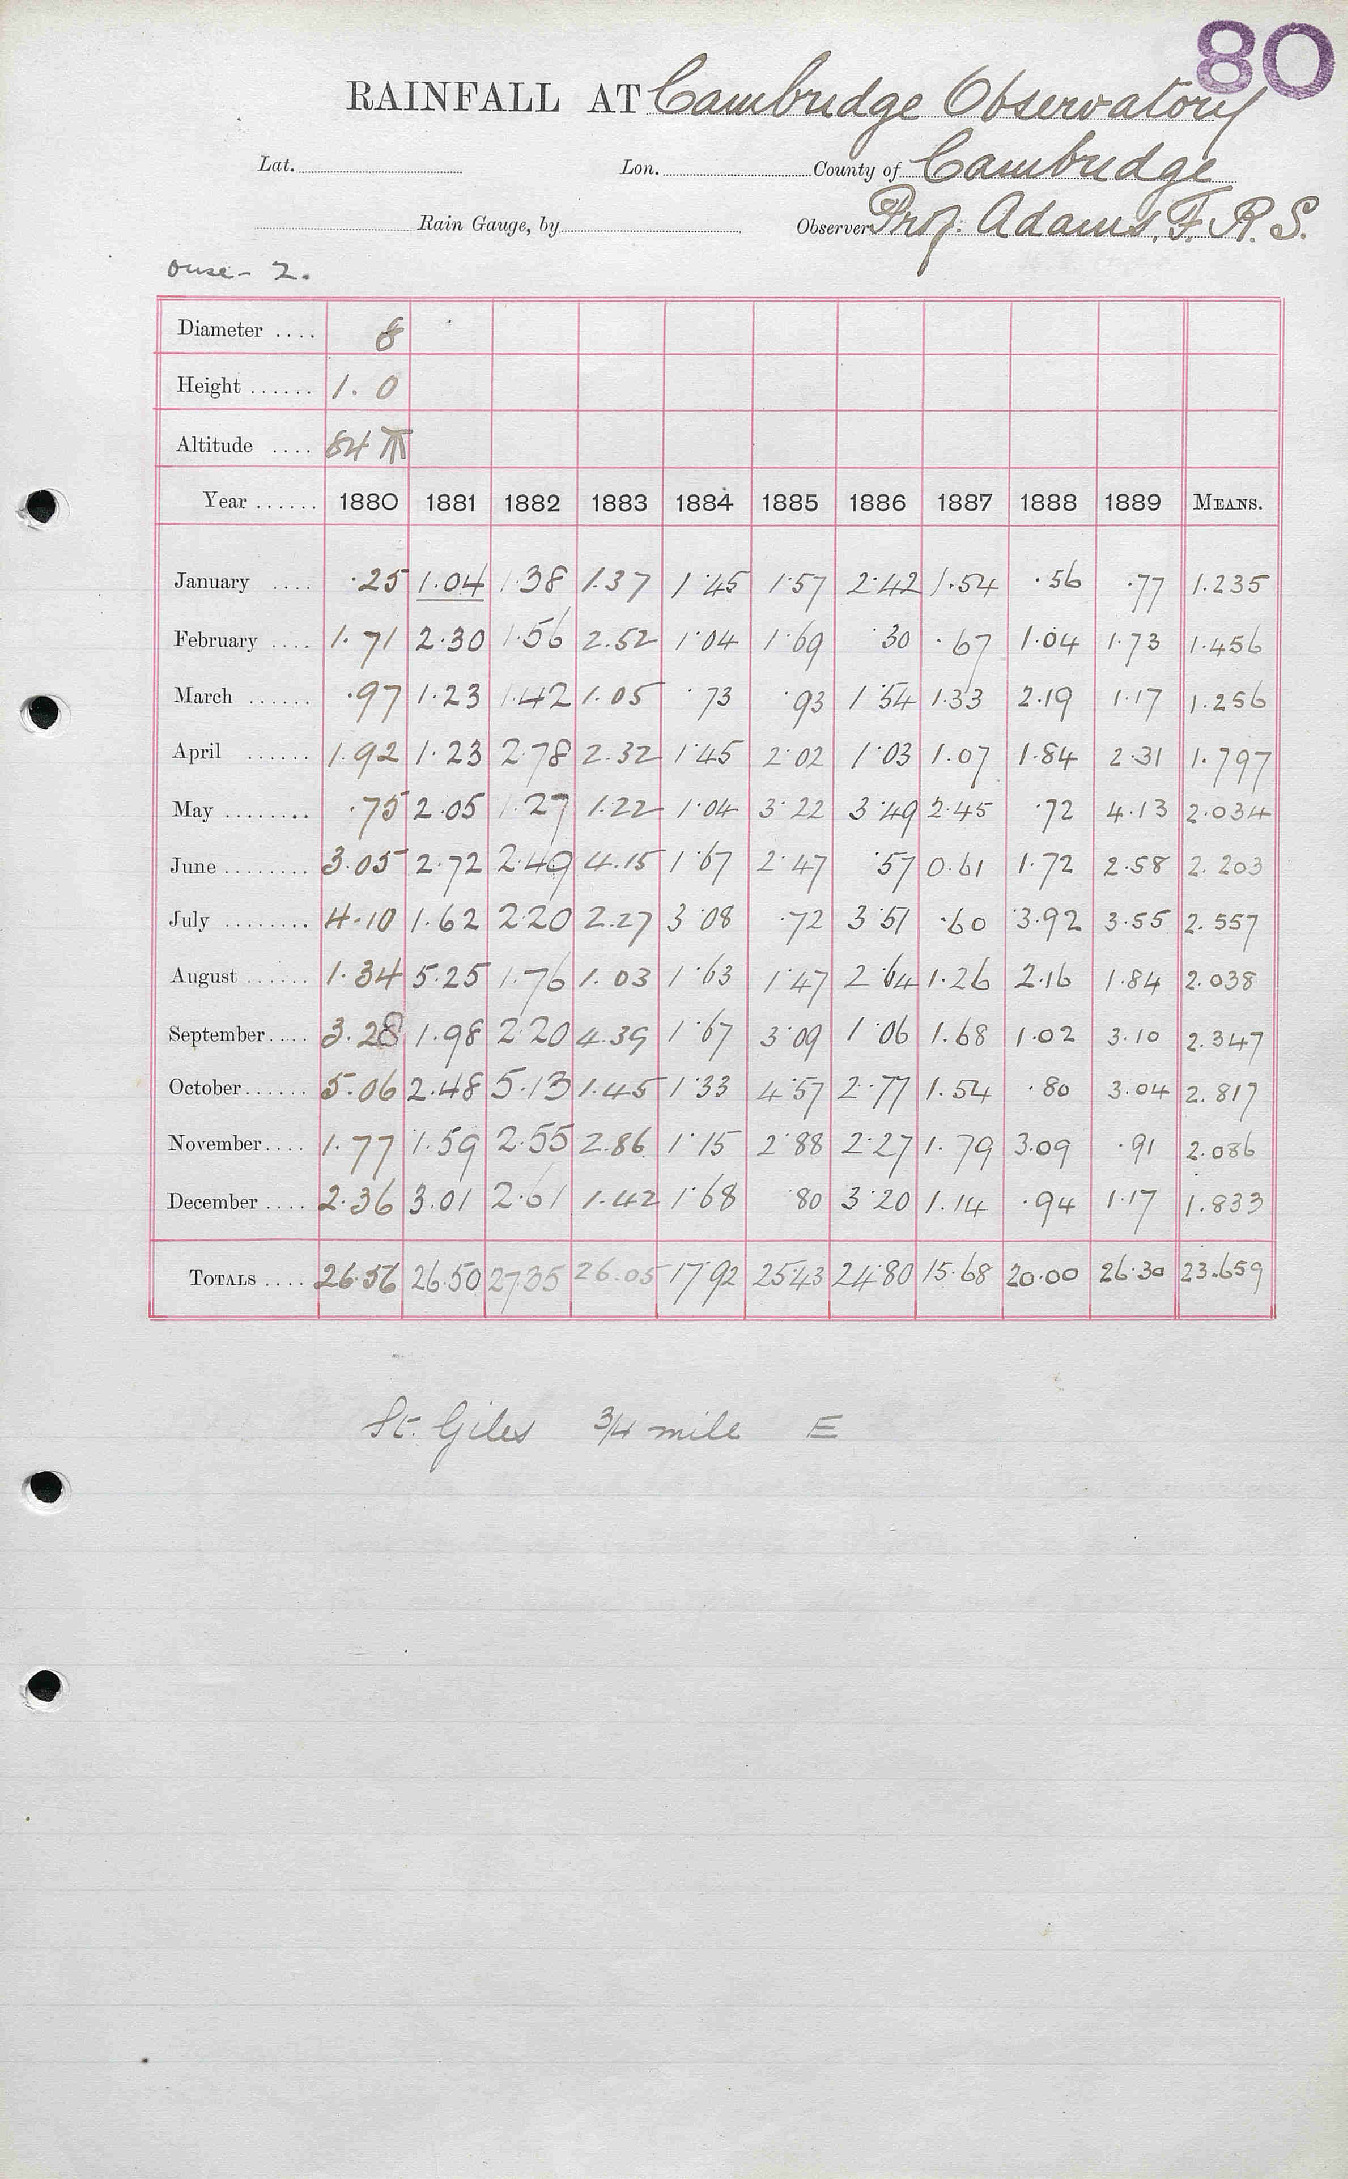 80
RAINFALL AT Cambridge Observatory
Lat. Lon. County of Cambridge
Rain Gauge, by Observer Prof. Adams, F.R.S.
Ouse - 2.
Diameter .... 8
Height ...... 1. 0
Altitude .... 84
Year ...... 1880 1881 1882 1883 1884 1885 1886 1887 1888 1889 MEANS.
January .... .25 1.04 1.38 1.37 1.45 1.57 2.42 1.54 .56 .77 1.235
February .... 1.71 2.30 1.56 2.52 1.04 1.69 .30 .67 1.04 1.73 1.456
March ...... .97 1.23 1.42 1.05 .73 .93 1.54 1.33 2.19 1.17 1.256
April ...... 1.92 1.23 2.78 2.32 1.45 2.02 1.03 1.07 1.84 2.31 1.797
May ........ .75 2.05 1.27 1.22 1.04 3.22 3.49 2.45 .72 4.13 2.034
June ........ 3.05 2.72 2.49 4.15 1.67 2.47 .57 0.61 1.72 2.58 2.203
July ........ 4.10 1.62 2.20 2.27 3.08 .72 3.51 .60 3.92 3.55 2.557
August ...... 1.34 5.25 1.76 1.03 1.63 1.47 2.64 1.26 2.16 1.84 2.038
September.... 3.28 1.98 2.20 4.39 1.67 3.09 1.06 1.68 1.02 3.10 2.347
October...... 5.06 2.48 5.13 1.45 1.33 4.57 2.77 1.54 .80 3.04 2.817
November.... 1.77 1.59 2.55 2.86 1.15 2.88 2.27 1.79 3.09 .91 2.086
December .... 2.36 3.01 2.61 1.42 1.68 .80 3.20 1.14 .94 1.17 1.833
TOTALS .... 26.56 26.50 27.35 26.05 17.92 25.43 24.80 15.68 20.00 26.30 23.659
St. Giles 3/4 mile E